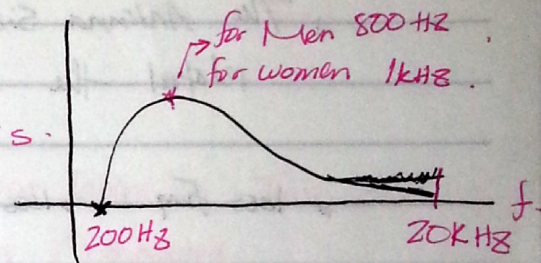 for Men 800 Hz.
for women 1kHz.
s.
f.
200 Hz
20k Hz